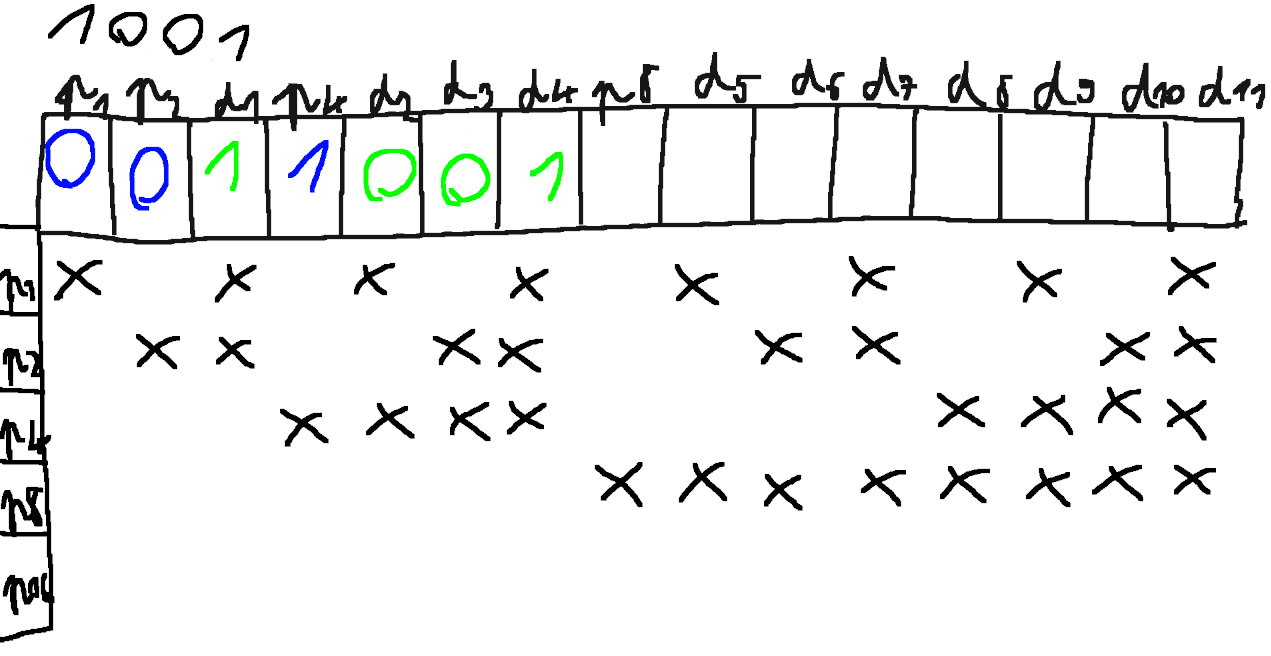 1001
p1 p2 d1 p4 d2 d3 d4 p8 d5 d6 d7 d8 d9 d10 d11
0 0 1 1 0 0 1
p1 X X X X X X X X
p2 X X X X X X X X
p4 X X X X X X X X
p8 X X X X X X X X